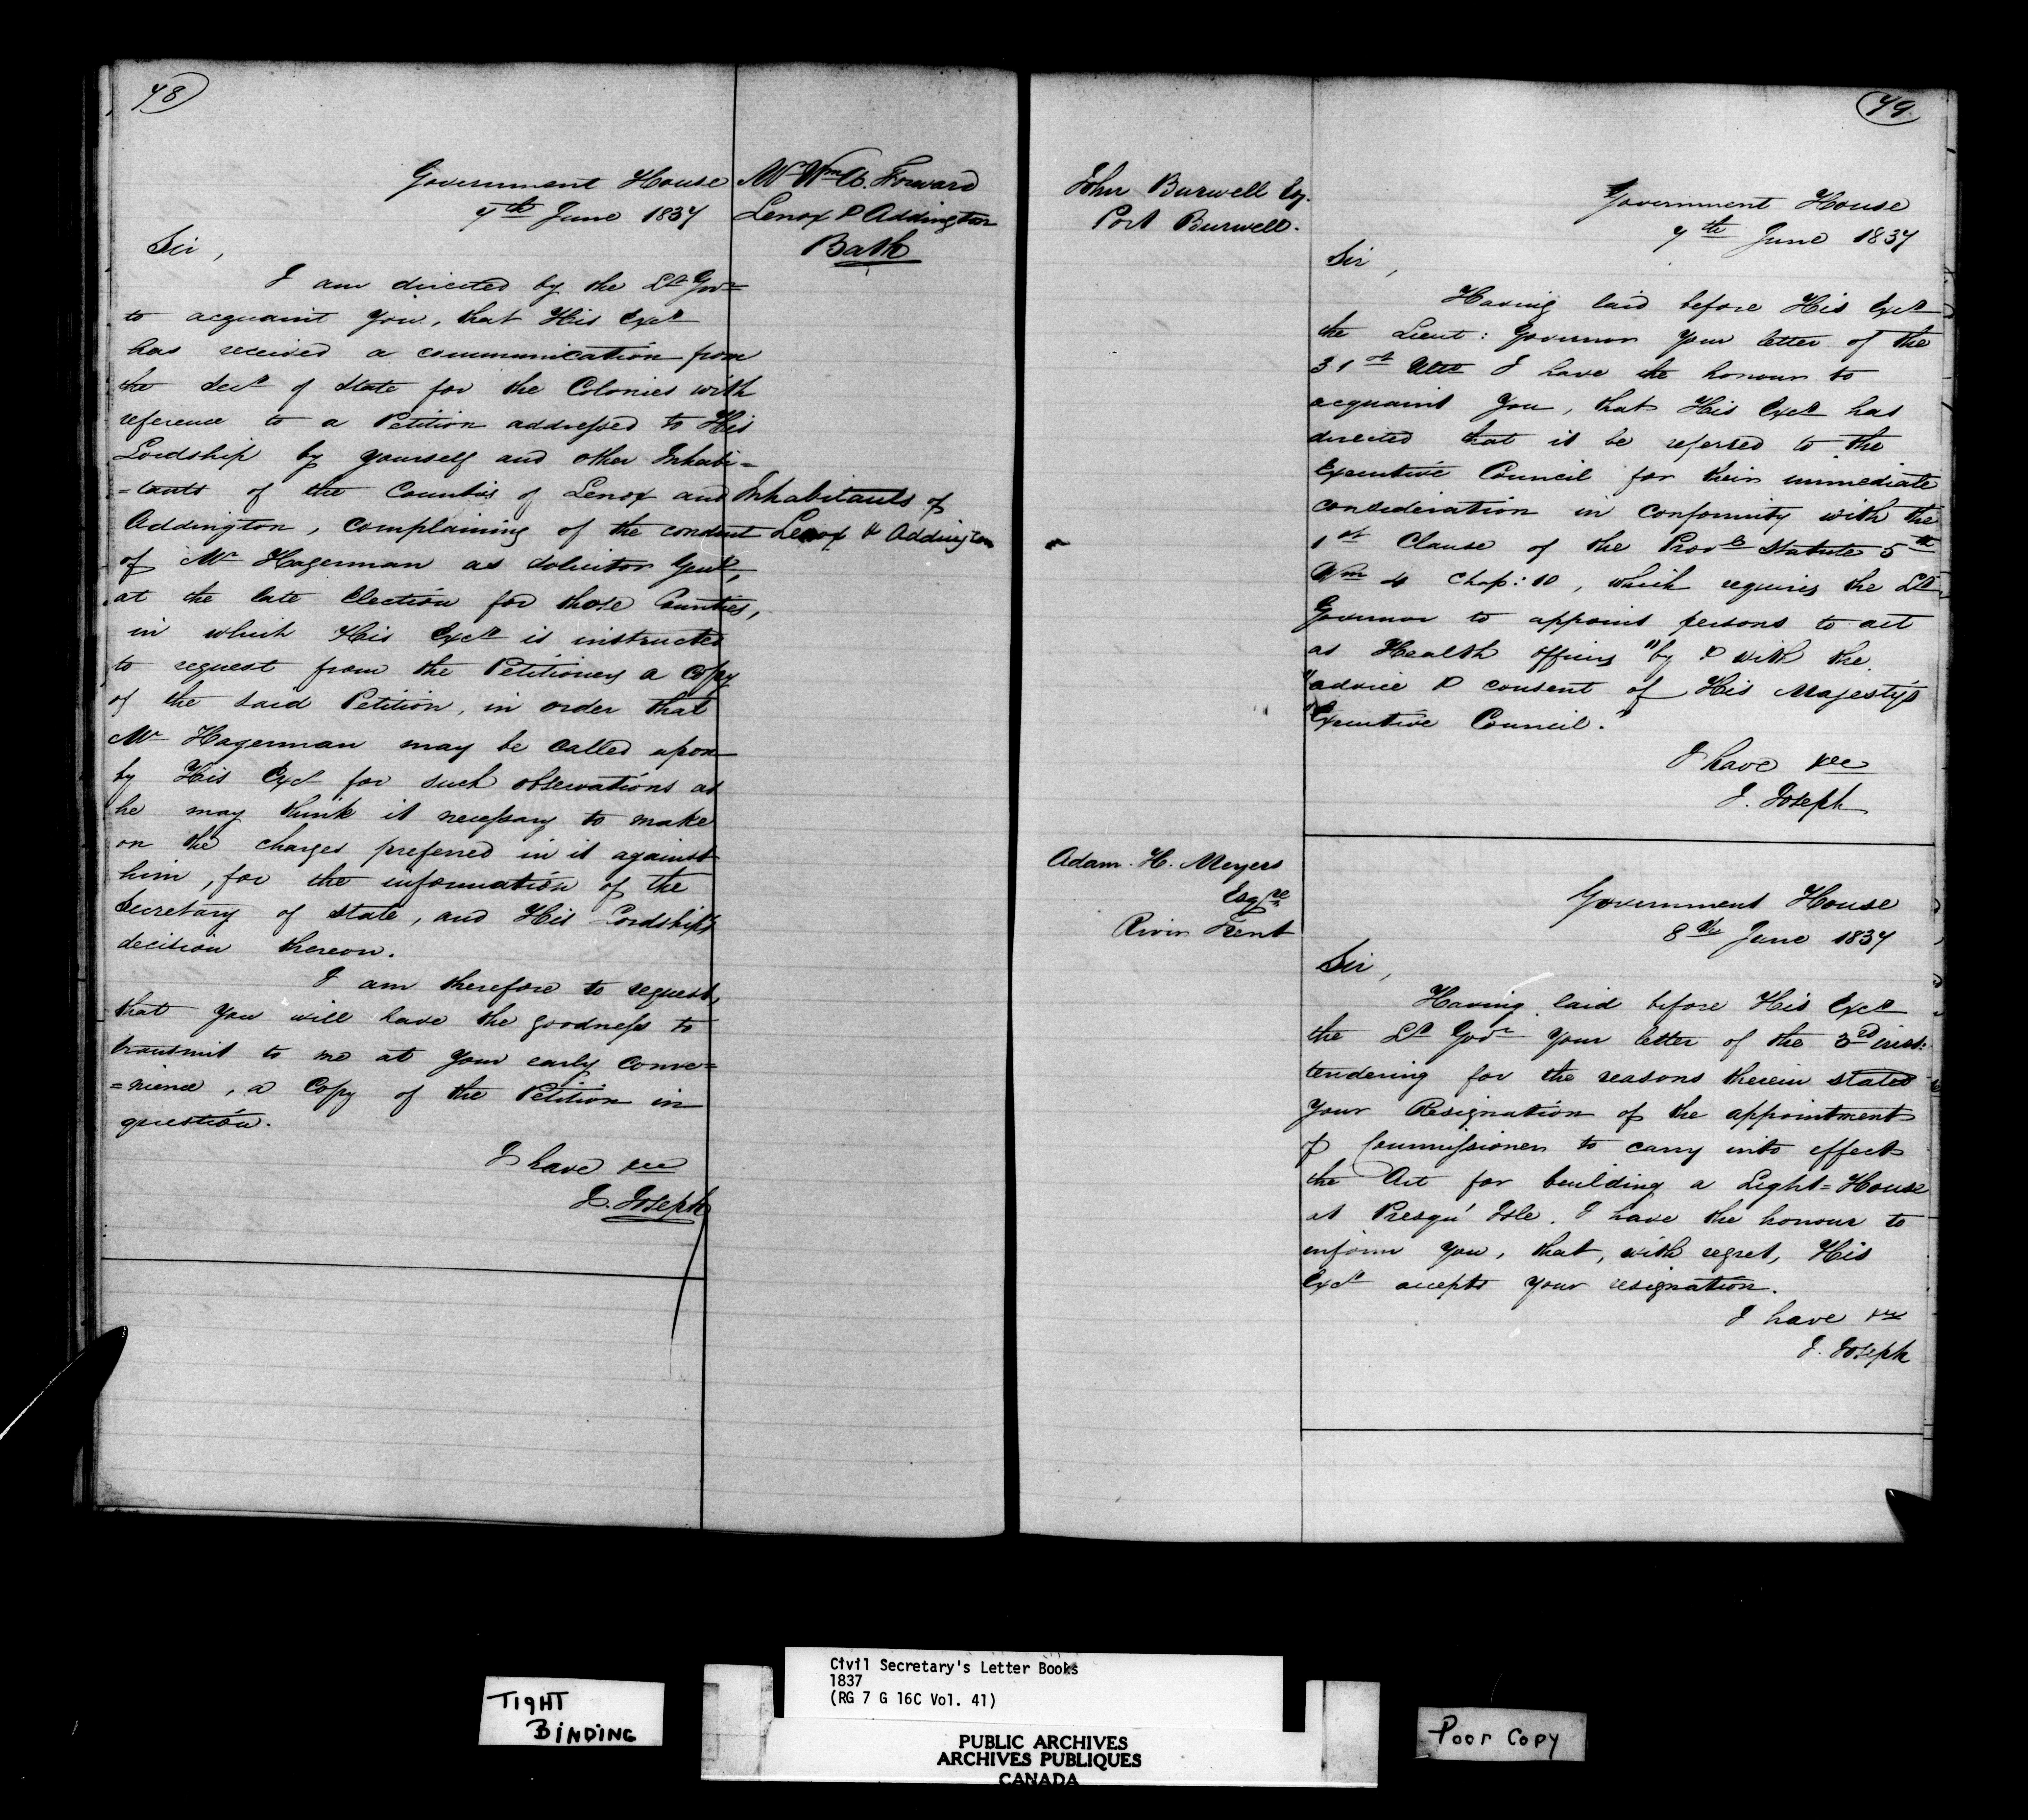 78
Government House
7th June 1837
Mr Wm A. Forward
Lenox & Addington
Bath
Sir,
I am directed by the Lt Govr
to acquaint you, that His Excy
has received a communication from
the Secy of State for the Colonies with
reference to a Petition addressed to His
Lordship by yourself and other Inhabi=
=tants of the Counties of Lenox and
Addington, complaining of the conduct
Inhabitants of
Lenox & Addington
of Mr Hagerman as Solicitor Genl,
at the late Election for those Counties,
in which His Excy is instructed
to request from the Petitioners a Copy
of the said Petition, in order that
Mr Hagerman may be called upon
by His Excy for such observations as
he may think it necessary to make
on the charges preferred in it against
him, for the information of the
Secretary of State, and His Lordship's
decision thereon.
I am therefore to request,
that you will have the goodness to
transmit to me at your early conve=
=nience, a Copy of the Petition in
question.
I have &c
J. Joseph
79
John Burwell Esq.
Port Burwell.
Government House
7th June 1837
Sir,
Having laid before His Excy
the Lieut: Governor your letter of the
31st Ulto I have the honour to
acquaint you, that His Excy has
directed that it be referred to the
Executive Council for their immediate
consideration in conformity with the
1st Clause of the Provl Statute 5th
Wm 4 Chap: 10, which requires the Lt
Governor to appoint persons to act
as Health officers "by & with the
"advice & consent of His Majesty's
"Executive Council."
I have &c
J. Joseph
Adam. H. Meyers
Esqre
River Trent
Government House
8th June 1837
Sir,
Having laid before His Excy
the Lt Govr your letter of the 3rd inst:
tendering for the reasons therein stated
your Resignation of the appointment
of Commissioner to carry into effect
the Act for building a Light=House
at Presqu' Isle. I have the honour to
inform you, that, with regret, His
Excy accepts your resignation.
I have &c
J. Joseph
TIGHT
BINDING
Civil Secretary's Letter Books
1837
(RG 7 G 16C Vol. 41)
PUBLIC ARCHIVES
ARCHIVES PUBLIQUES
CANADA
Poor Copy